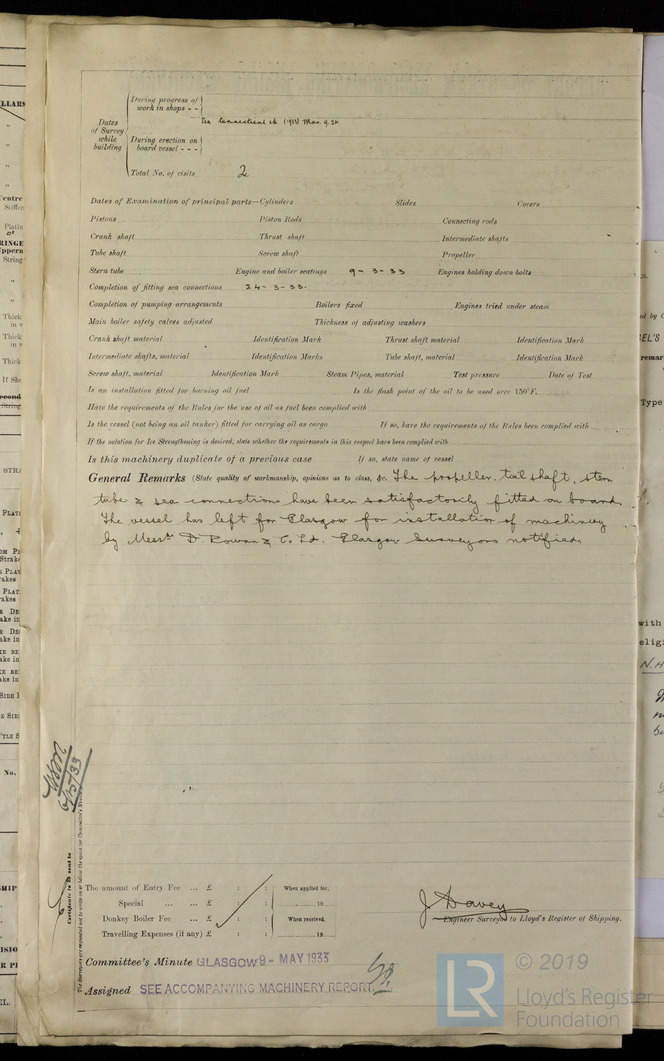 During progress of
work in shops - -
Dates
of Survey
while
building
Sea Connections &c (1933) Mar. 9. 24
During erection on
board vessel - - -
Total No. of visits 2
Dates of Examination of principal parts—Cylinders Slides Covers
Pistons Piston Rods Connecting rods
Crank shaft Thrust shaft Intermediate shafts
Tube shaft Screw shaft Propeller
Stern tube Engine and boiler seatings 9-3-33 Engines holding down bolts
Completion of fitting sea connections 24-3-33.
Completion of pumping arrangements Boilers fixed Engines tried under steam
Main boiler safety valves adjusted Thickness of adjusting washers
Crank shaft material Identification Mark Thrust shaft material Identification Mark
Intermediate shafts, material Identification Marks Tube shaft, material Identification Mark
Screw shaft, material Identification Mark Steam Pipes, material Test pressure Date of Test
Is an installation fitted for burning oil fuel Is the flash point of the oil to be used over 150°F.
Have the requirements of the Rules for the use of oil as fuel been complied with
Is the vessel (not being an oil tanker) fitted for carrying oil as cargo If so, have the requirements of the Rules been complied with
If the notation for Ice Strengthening is desired, state whether the requirements in this respect have been complied with
Is this machinery duplicate of a previous case If so, state name of vessel
General Remarks (State quality of workmanship, opinions as to class, &c. The propeller, tail shaft, stern
tube & sea connections have been satisfactorily fitted on board.
The vessel has left for Glasgow for installation of machinery
by Messrs D. Rowan & C. Ld. Glasgow Surveyors notified.
6/5/33
Certificate to be sent to
The Surveyors are requested not to write on or below the space for Committee's Minute.
The amount of Entry Fee ... £ : : When applied for,
Special ... ... £ : : 19
Donkey Boiler Fee ... £ : : When received,
Travelling Expenses (if any) £ : : 19
J. Davey
Engineer Surveyor to Lloyd's Register of Shipping.
Committee's Minute GLASGOW 9 - MAY 1933
Assigned SEE ACCOMPANYING MACHINERY REPORT.
LR
© 2019
Lloyd's Register
Foundation